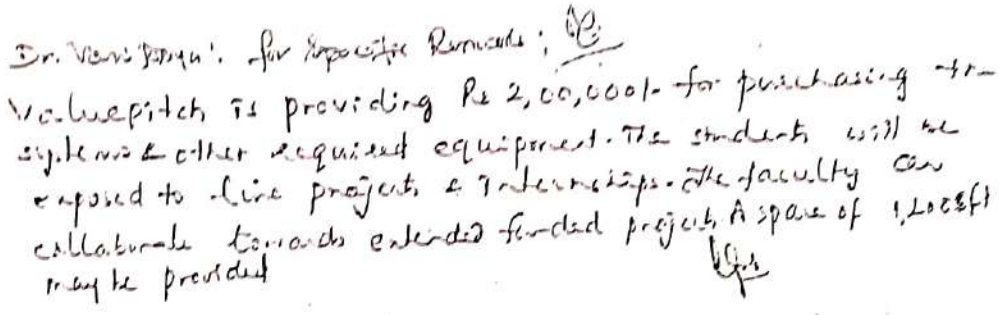 Dr. Vani Priya: for specific Remarks;
Valuepitch is providing Rs 2,00,000/- for purchasing the
systems & other required equipment. The students will be
exposed to live projects & Internships. The faculty can
collaborate towards extended funded project. A space of
may be provided